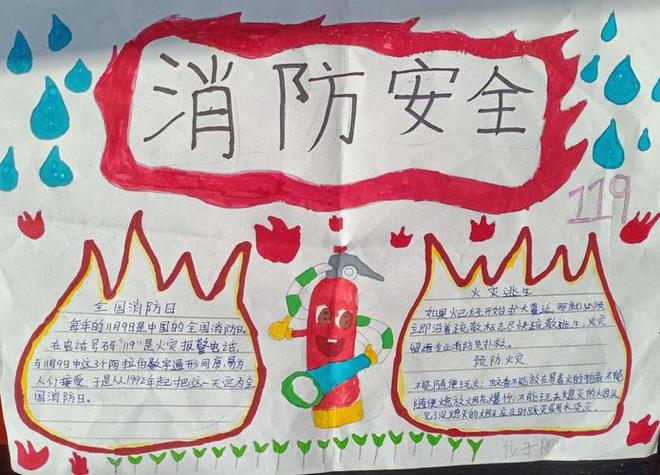 消防安全
119
全国消防日
每年的11月9日是中国的全国消防日。
在电话号码"119"是火灾报警电话,
与11月9日中这3个阿拉伯数字通形同序,易为
人们接受,于是从1992年起,把这一天定为全
国消防日。
火灾逃生
如果火已经开始扩大蔓延,那就必须
立即沿着疏散标志尽快疏散逃生,火灾
留给专业消防员扑救。
预防火灾
不能随便玩火,蚊香不能放在易着火的物品
随便燃放烟花爆竹,不能